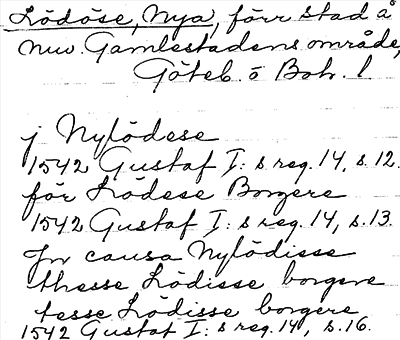 Lödöse, Nya, förr stad å
nuv. Gamlestadens område,
Göteb. o Boh. l
j Nylödese
1542 Gustaf I: s reg. 14, s. 12.
för Lödese Borgere
1542 Gustaf I: s reg. 14, s. 13.
In causa Nylödisse
thesse Lödisse borgere
tesse Lödisse borgere
1542 Gustaf I: s reg. 14, s. 16.